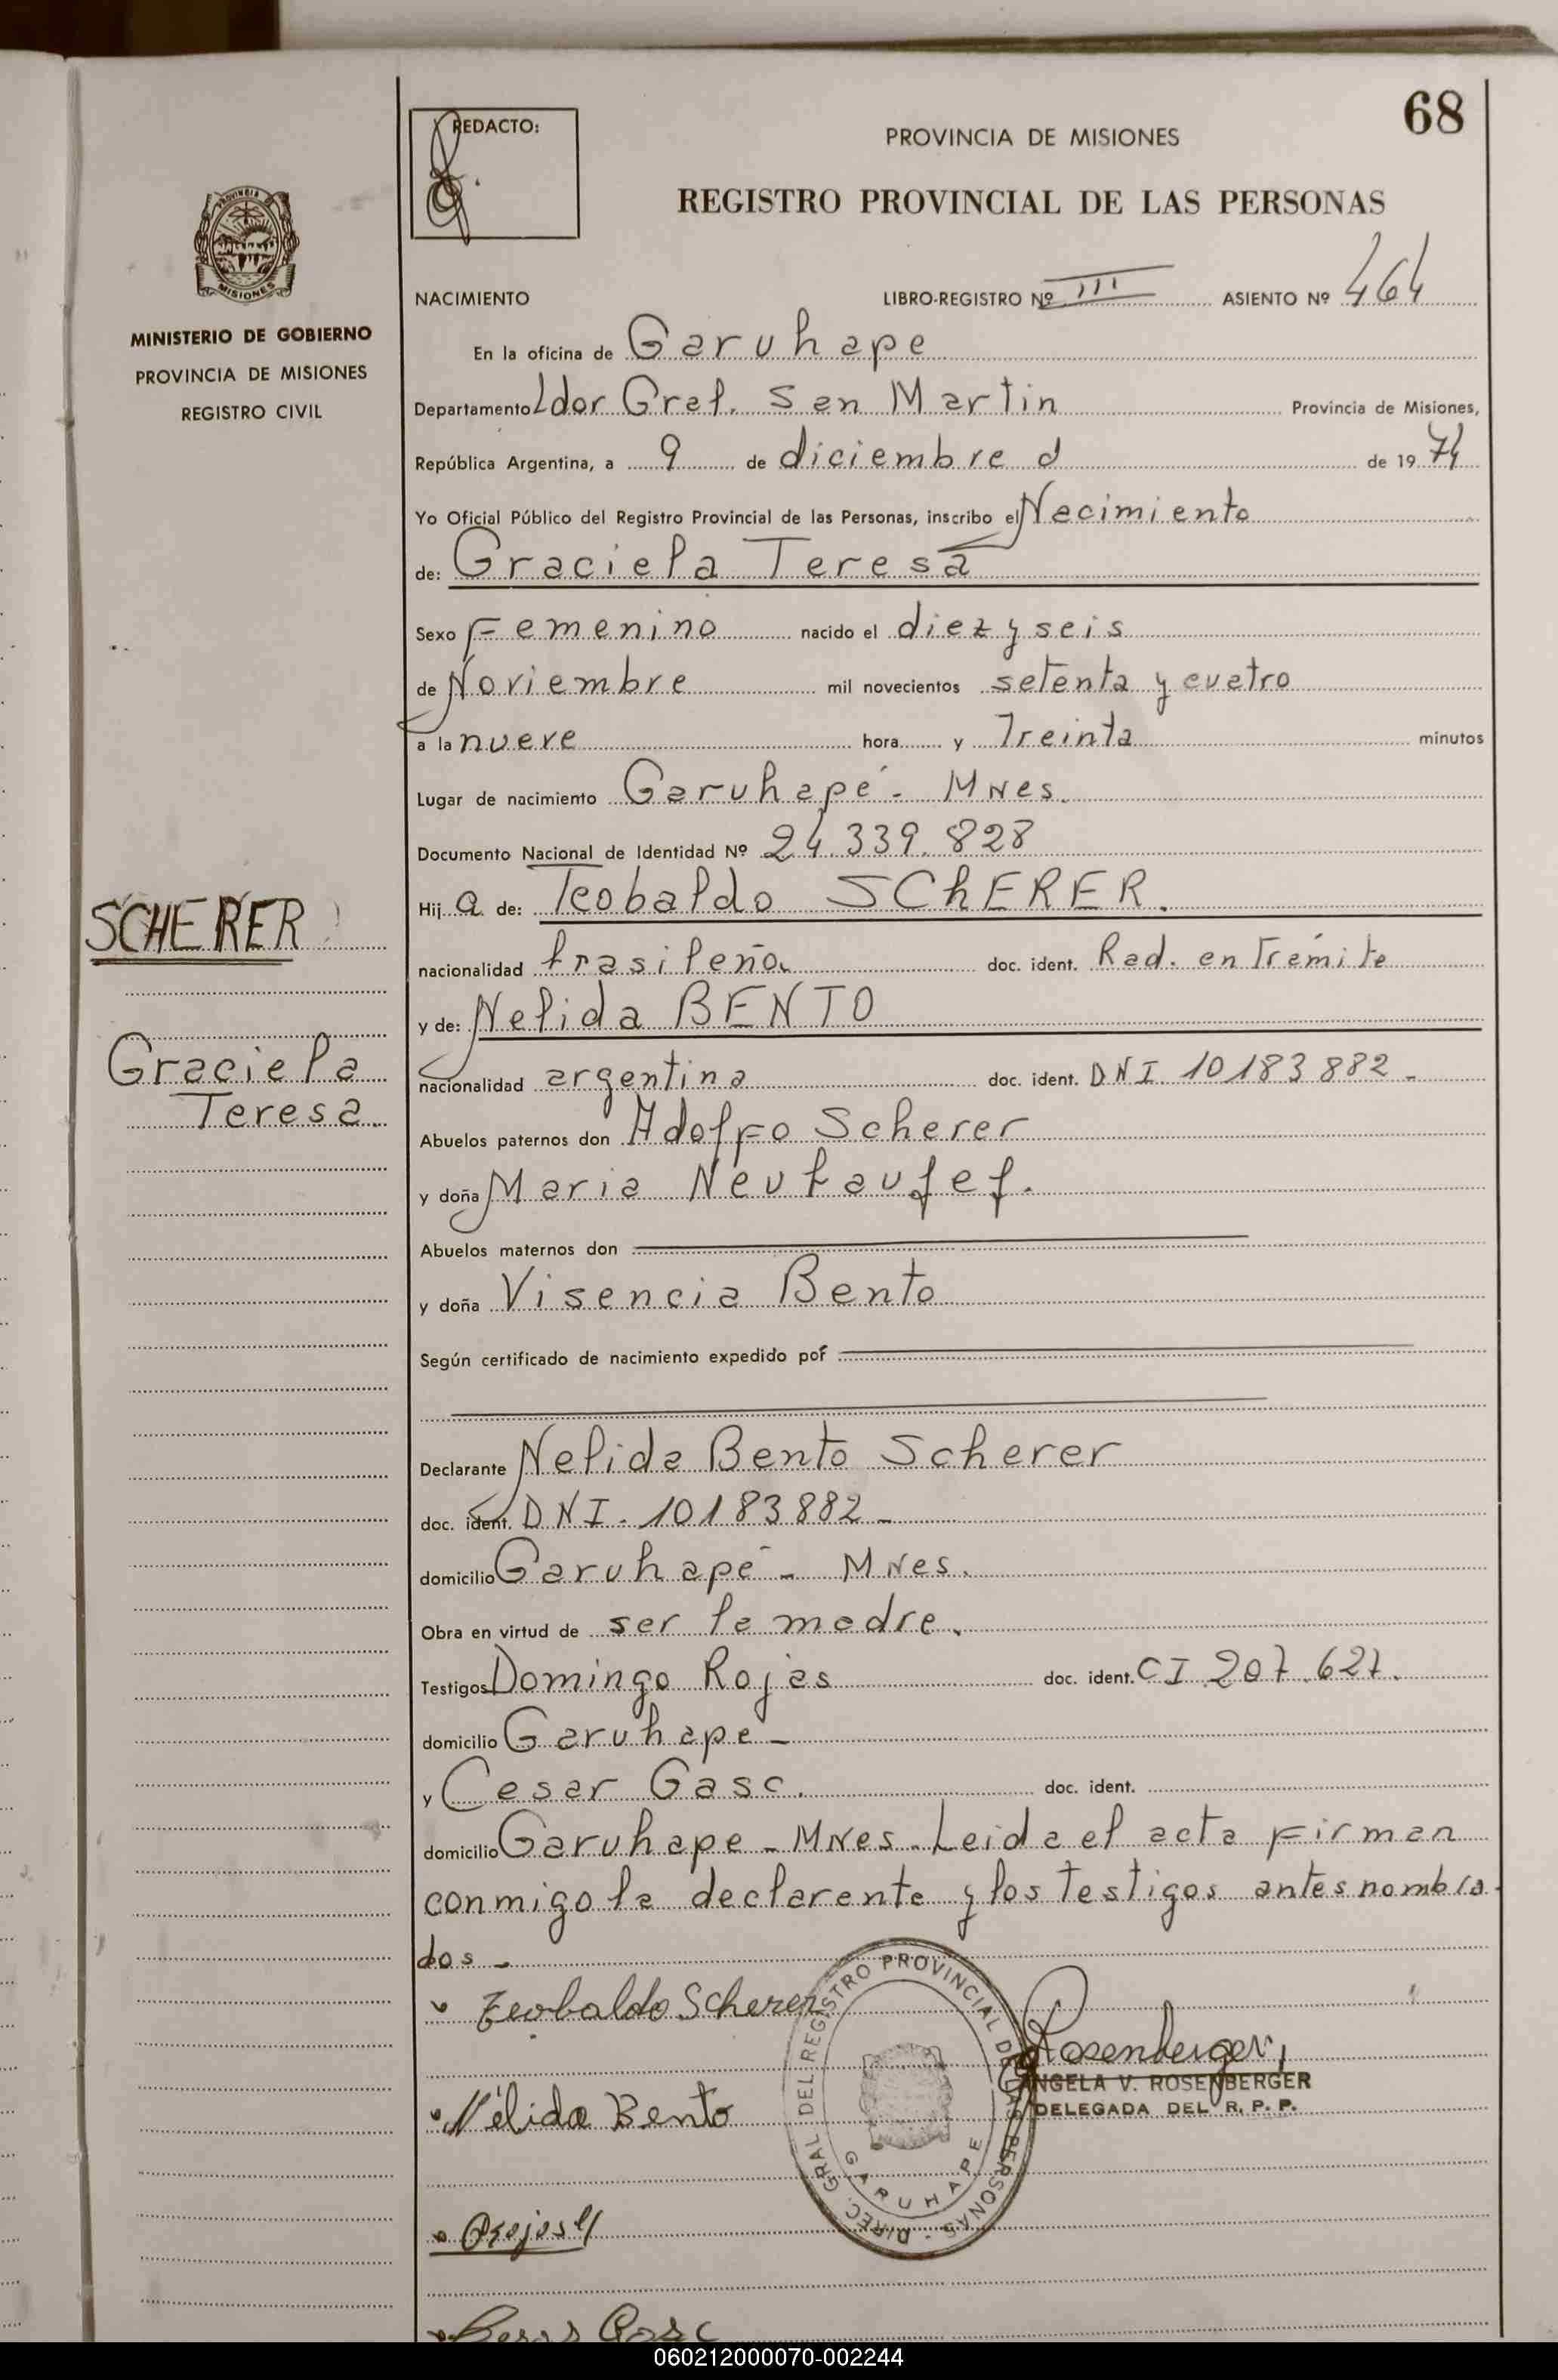 68
REDACTO:
PROVINCIA DE MISIONES
REGISTRO PROVINCIAL DE LAS PERSONAS
MISIONES
MINISTERIO DE GOBIERNO
PROVINCIA DE MISIONES
REGISTRO CIVIL
NACIMIENTO LIBRO-REGISTRO Nº III ASIENTO Nº 464
En la oficina de Garuhape
Departamento Ldor Gral. San Martin Provincia de Misiones,
República Argentina, a 9 de diciembre d de 19 74
Yo Oficial Público del Registro Provincial de las Personas, inscribo el Nacimiento
de: Graciela Teresa
Sexo Femenino nacido el diez y seis
de Noviembre mil novecientos setenta y cuatro
a la nueve hora y Treinta minutos
Lugar de nacimiento Garuhapé - MNes.
Documento Nacional de Identidad Nº 24.339.828
SCHERER
Hij a de: Teobaldo SChERER.
nacionalidad brasileña doc. ident. Rad. en Trámite
y de: Nelida BENTO
Graciela
Teresa.
nacionalidad argentina doc. ident. DNI 10183882-
Abuelos paternos don Adolfo Scherer
y doña Maria
Abuelos maternos don
y doña Visencia Bento
Según certificado de nacimiento expedido por
Declarante Nelida Bento Scherer
doc. ident. DNI. 10183882-
domicilio Garuhapé - MNes.
Obra en virtud de ser la madre.
Testigos Domingo Rojas doc. ident. CI 207.627.
domicilio Garuhape-
y Cesar Gasc. doc. ident.
domicilio Garuhape - MNes - Leida el acta firman
conmigo la declarante y los Testigos antes nombra-
dos -
Teobaldo Scherer
DIREC. GRAL DEL REGISTRO PROVINCIAL DE LAS PERSONAS -
GARUHAPE
Rosenberger
ANGELA V. ROSENBERGER
DELEGADA DEL R. P. P.
Nélida Bento
Rojas
Gasc
060212000070-002244